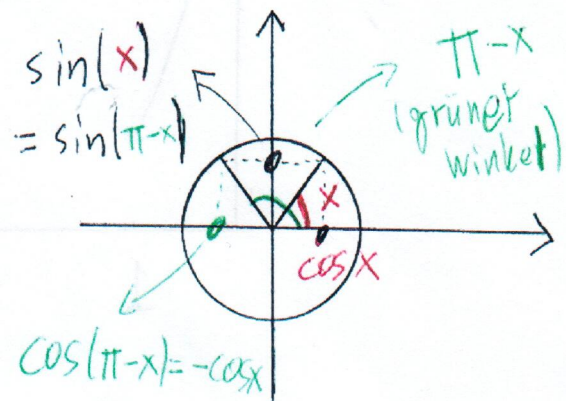 sin(x)
= sin(π-x)
π-x
(grüner
winkel)
x
cos x
cos(π-x)=-cosx